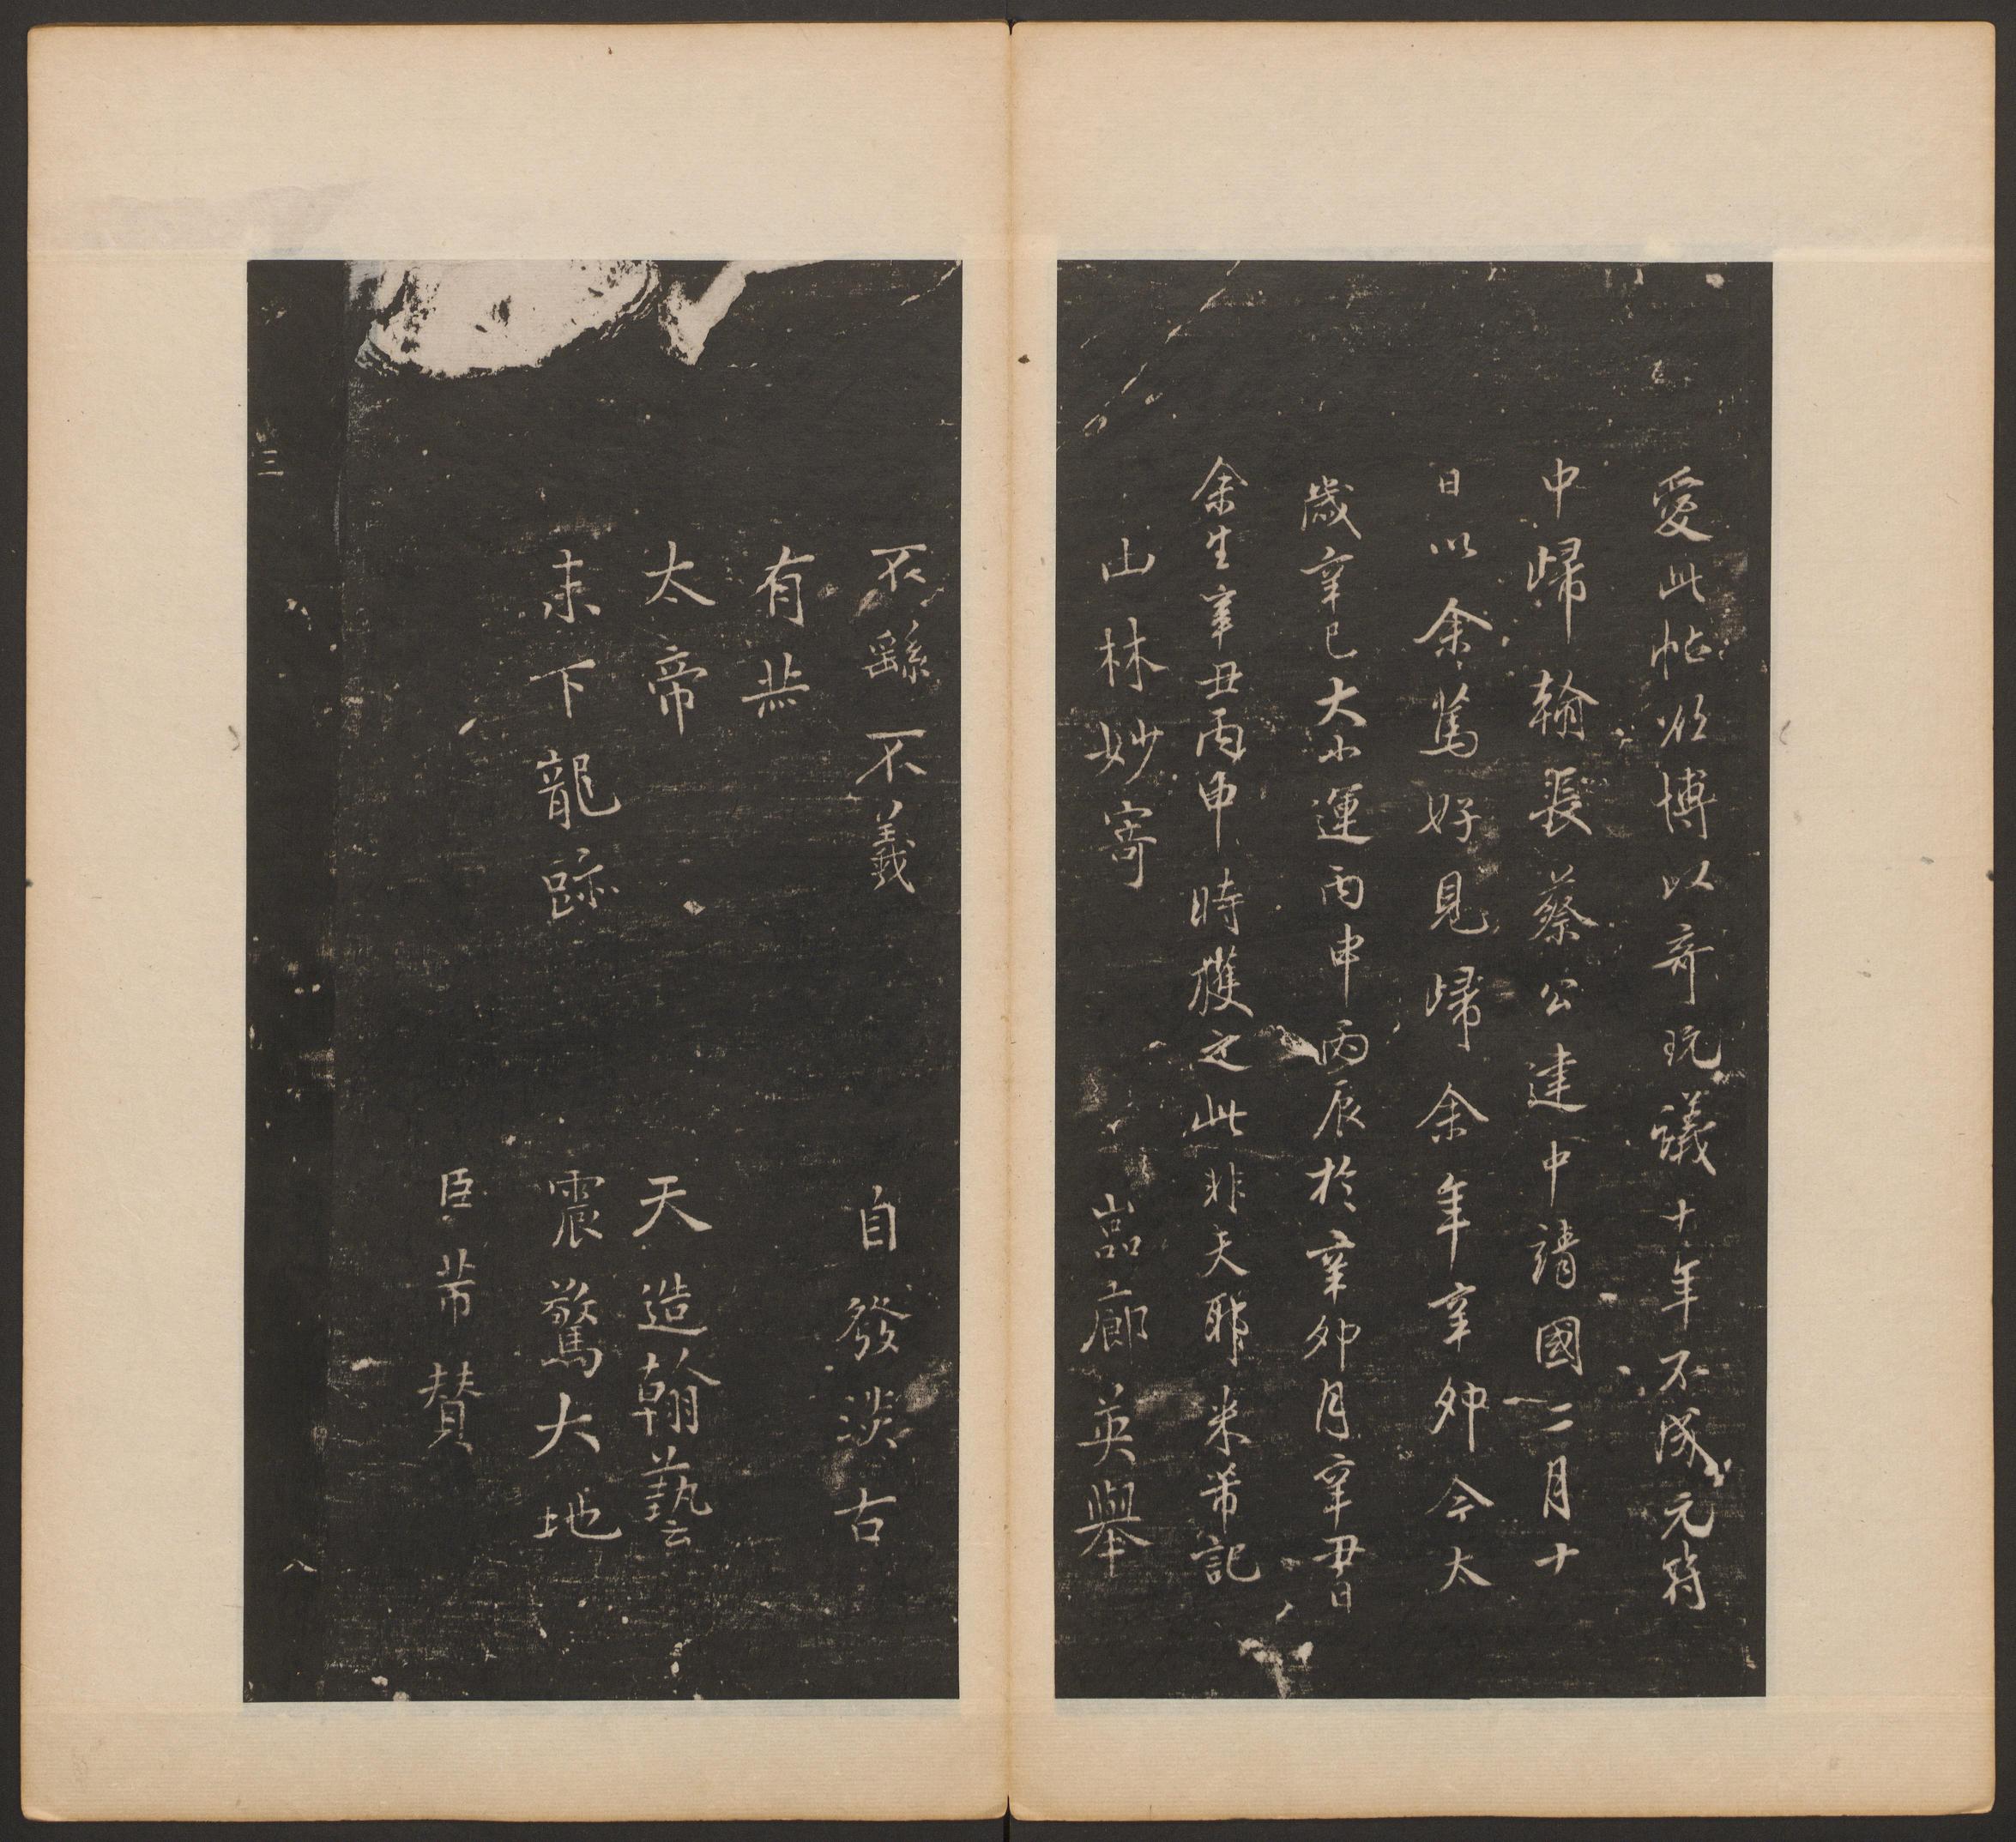 愛此帖欲博以奇玩議十年不成元符
中歸翰長蔡公建中靖國二月十
日以余篤好見歸余年辛卯今太
歲辛巳大小運丙申丙辰於辛卯月辛丑日
余生辛丑丙申時獲之此非天耶米芾記
山林妙寄
嵓廊英舉
不繇不義
自發淡古
有恭
太帝
天造翰藝
末下龍跡
震驚大地
臣芾贊
三
八